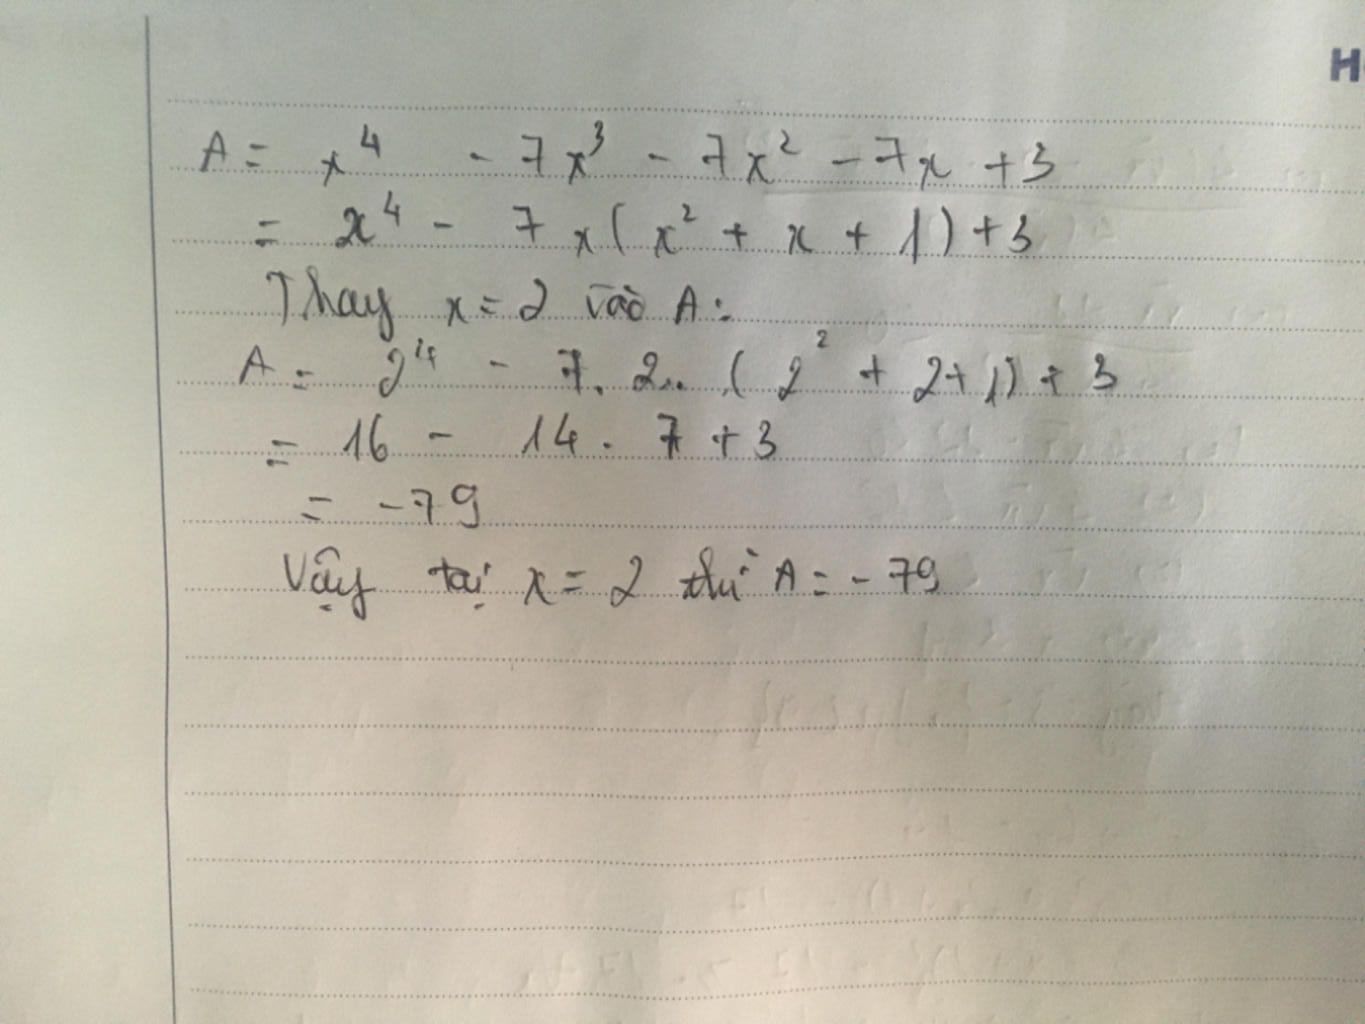 H
A = x⁴ - 7x³ - 7x² - 7x + 3
= x⁴ - 7x(x² + x + 1) + 3
Thay x = 2 vào A:
A = 2⁴ - 7. 2.. (2² + 2+1) + 3
= 16 - 14 . 7 + 3
= -79
Vậy tại x = 2 thì A = -79